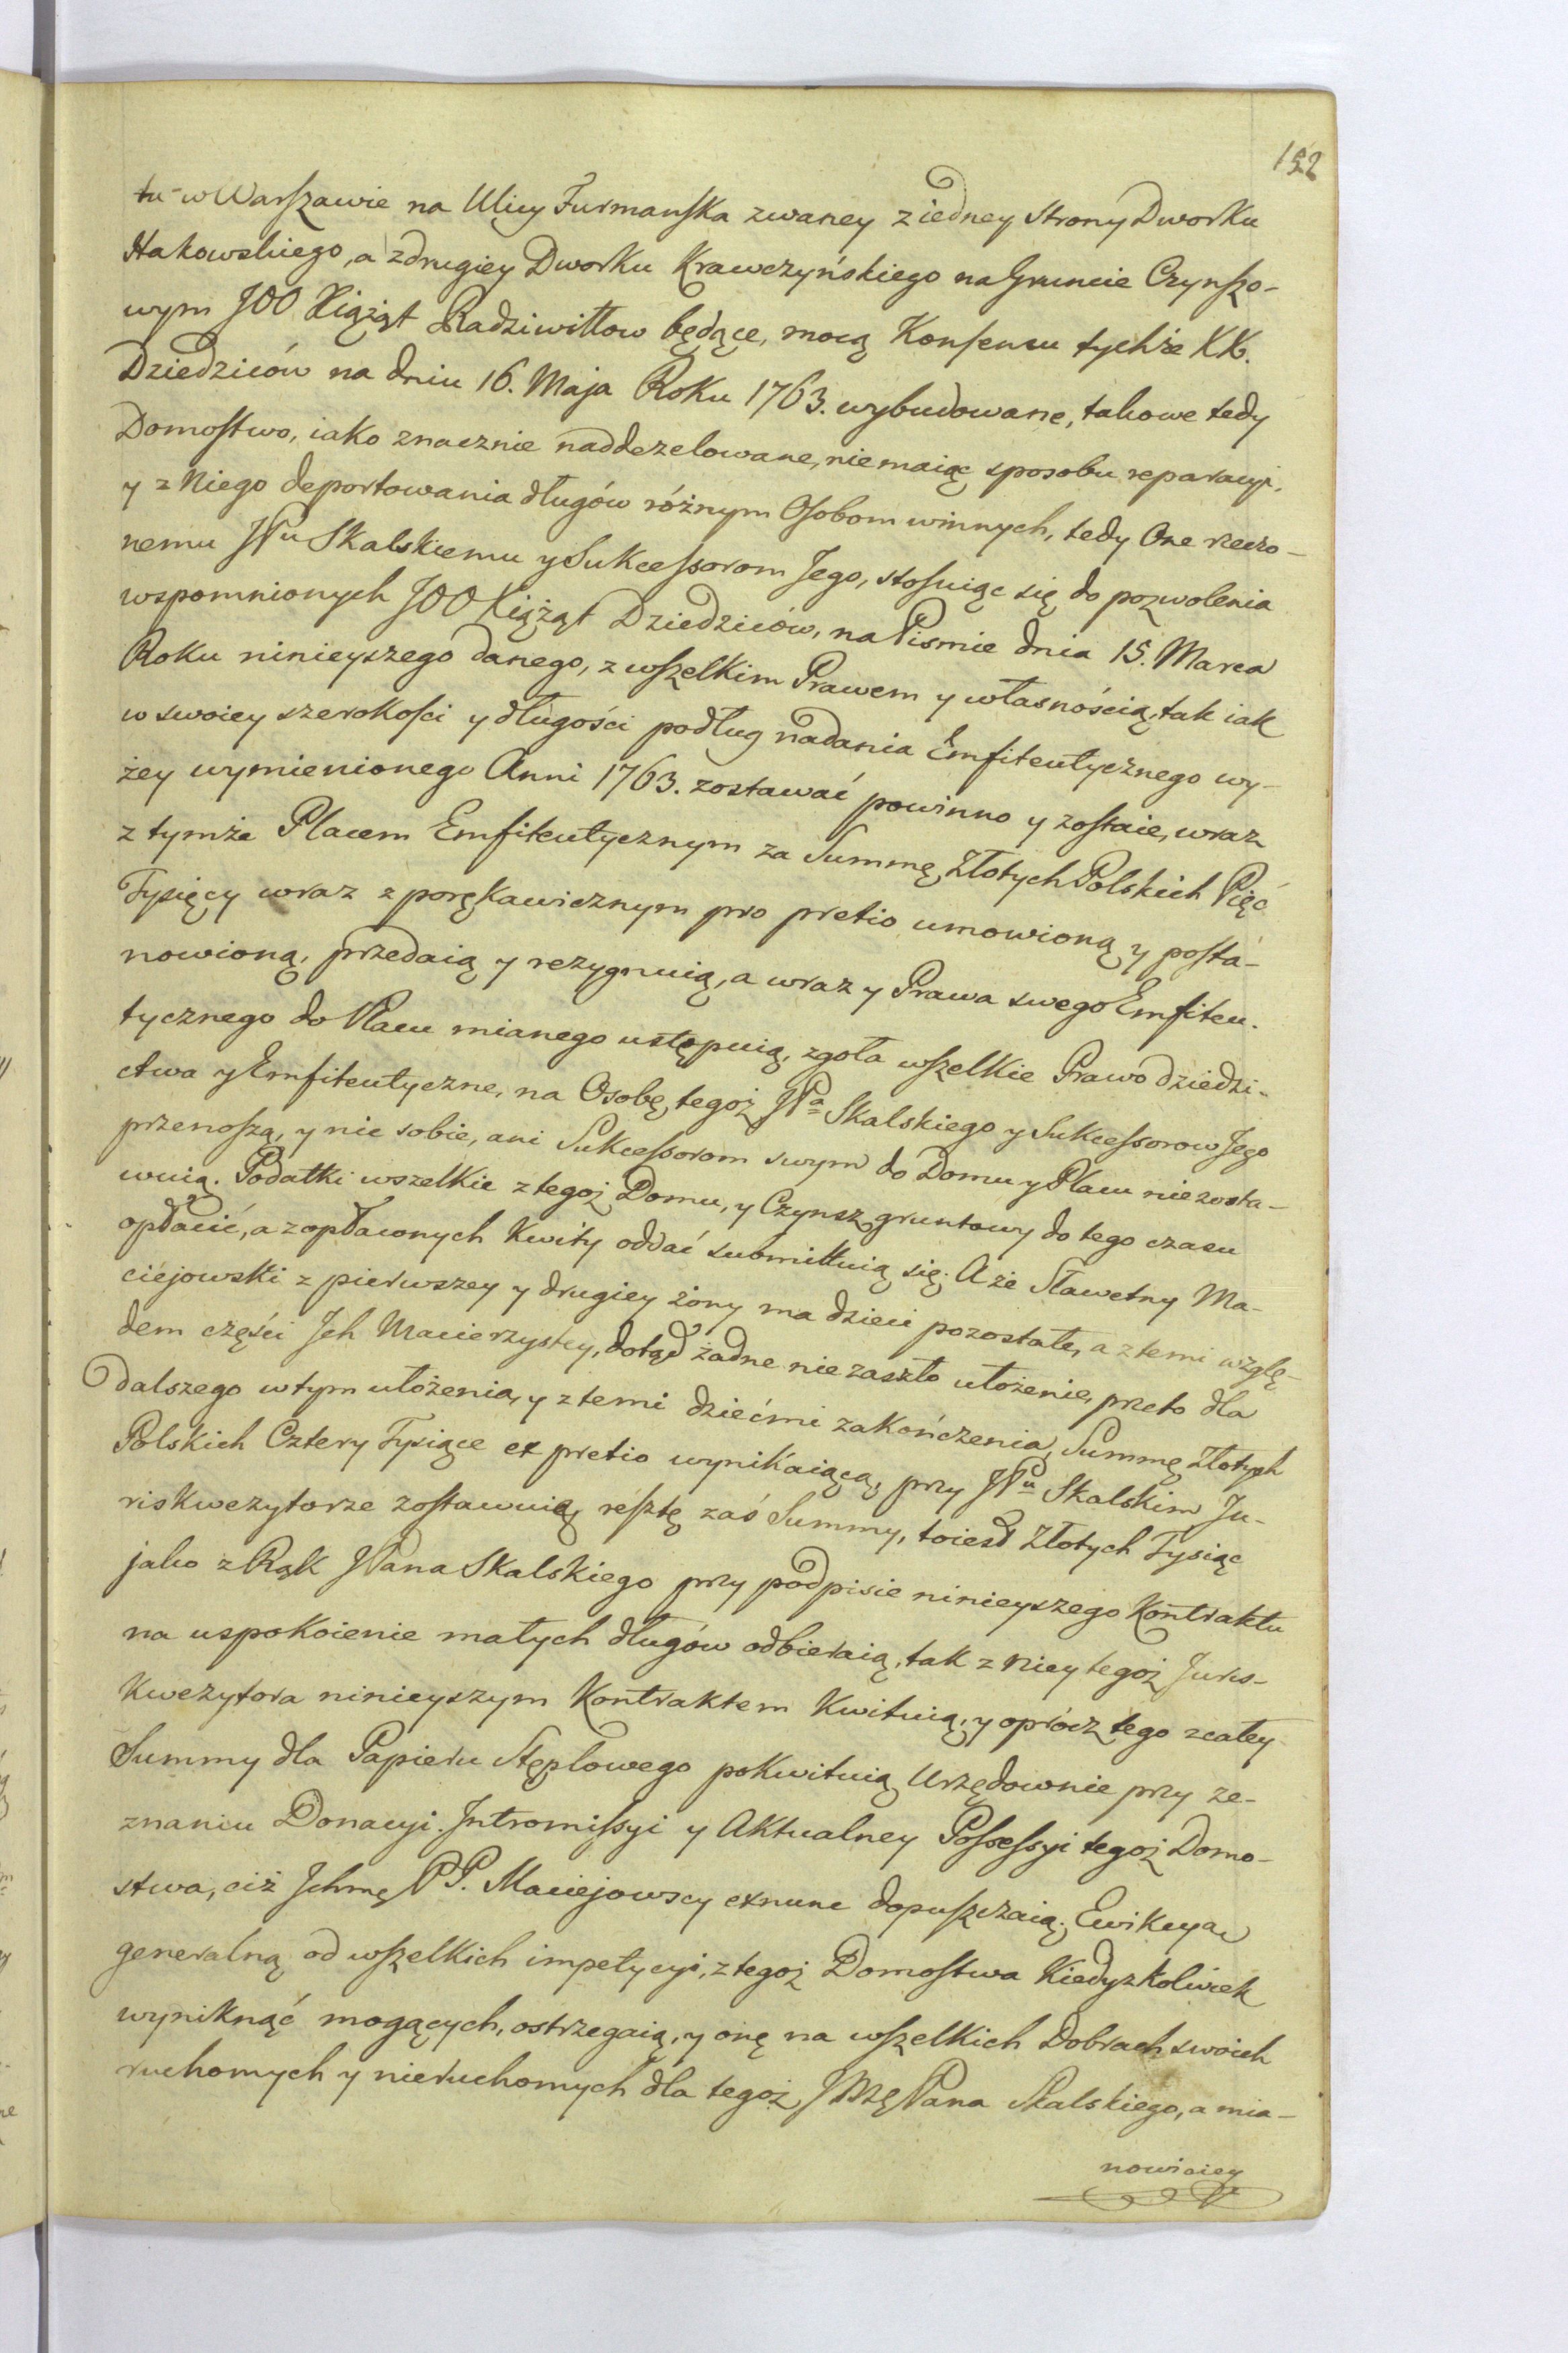 152
tu w Warszawie na Ulicy Furmanska zwaney z iedney strony Dworku
Hakowskiego, a z drugiey Dworku Krawczyńskiego na Gruncie Czynszo-
wym JOO Xiążąt Radziwiłłow będące, mocą Konsensu tychże XX.
Dziedziców na dniu 16. Maja Roku 1763. wybudowane, takowe tedy
Domostwo, iako znacznie naddezelowane, nie maiąc sposobu reparacyi,
y z Niego deportowania długów różnym Osobom winnych, tedy One rzeczo-
nemu JPu Skalskiemu y Sukcessorom Jego, stosuiąc się do pozwolenia
wspomnionych JOO Xiążąt Dziedziców, na Pismie dnia 15. Marca
Roku ninieyszego danego, z wszelkim Prawem y własnością, tak iak
w swoiey szerokości y długości podług nadania Emfiteutycznego wy-
żey wymienionego Anni 1763. zostawać powinno y zostaie, wraz
z tymże Placem Emfiteutycznym za Summę Złotych Polskich Pięć
Tysięcy wraz z porękawicznym pro pretio umowioną y posta-
nowioną, przedaią y rezygnuią, a wraz y Prawa swego Emfiteu-
tycznego do Placu mianego ustępuią, zgoła wszelkie Prawo dziedzi-
ctwa y Emfiteutyczne, na Osobę tegoż JPa Skalskiego y Sukcessorow Jego
przenoszą, y nic sobie, ani Sukcessorom swym do Domu y Placu nie zosta-
wuią. Podatki wszelkie z tegoż Domu, y Czynsz gruntowy do tego czasu
opłacić, a z opłaconych Kwity oddać submittuią się. A że Sławetny Ma-
ciejowski z pierwszey y drugiey żony ma dzieci pozostałe, a z temi wzglę-
dem części Jch Macierzystey, dotąd żadne nie zaszło ułożenie, przeto dla
dalszego w tym ułożenia, y z temi dziećmi zakończenia, Summę Złotych
Polskich Cztery Tysiące ex pretio wynikaiącą, przy JPu Skalskim Ju-
riskwezytorze zostawuią, resztę zaś Summy, to iest Złotych Tysiąc
jako z Rąk JPana Skalskiego przy podpisie ninieyszego Kontraktu
na uspokoienie małych długów odbieraią, tak z Niey tegoż Juris-
kwezytora ninieyszym Kontraktem Kwituią, y oprócz tego z całey
Summy dla Papieru Stęplowego pokwituią Urzędownie przy ze-
znaniu Donacyi. Jntromissyi y Aktualney Possessyi tegoż Domo-
stwa, ciż Jchmę PP. Maciejowscy exnunc dopuszczaią. Ewikcyą
generalną od wszelkich impetycyi, z tegoż Domostwa Kiedyżkolwiek
wyniknąć mogących, ostrzegaią, y onę na wszelkich Dobrach swoich
ruchomych y nieruchomych dla tegoż JMę Pana Skalskiego, a mia-
nowiciey